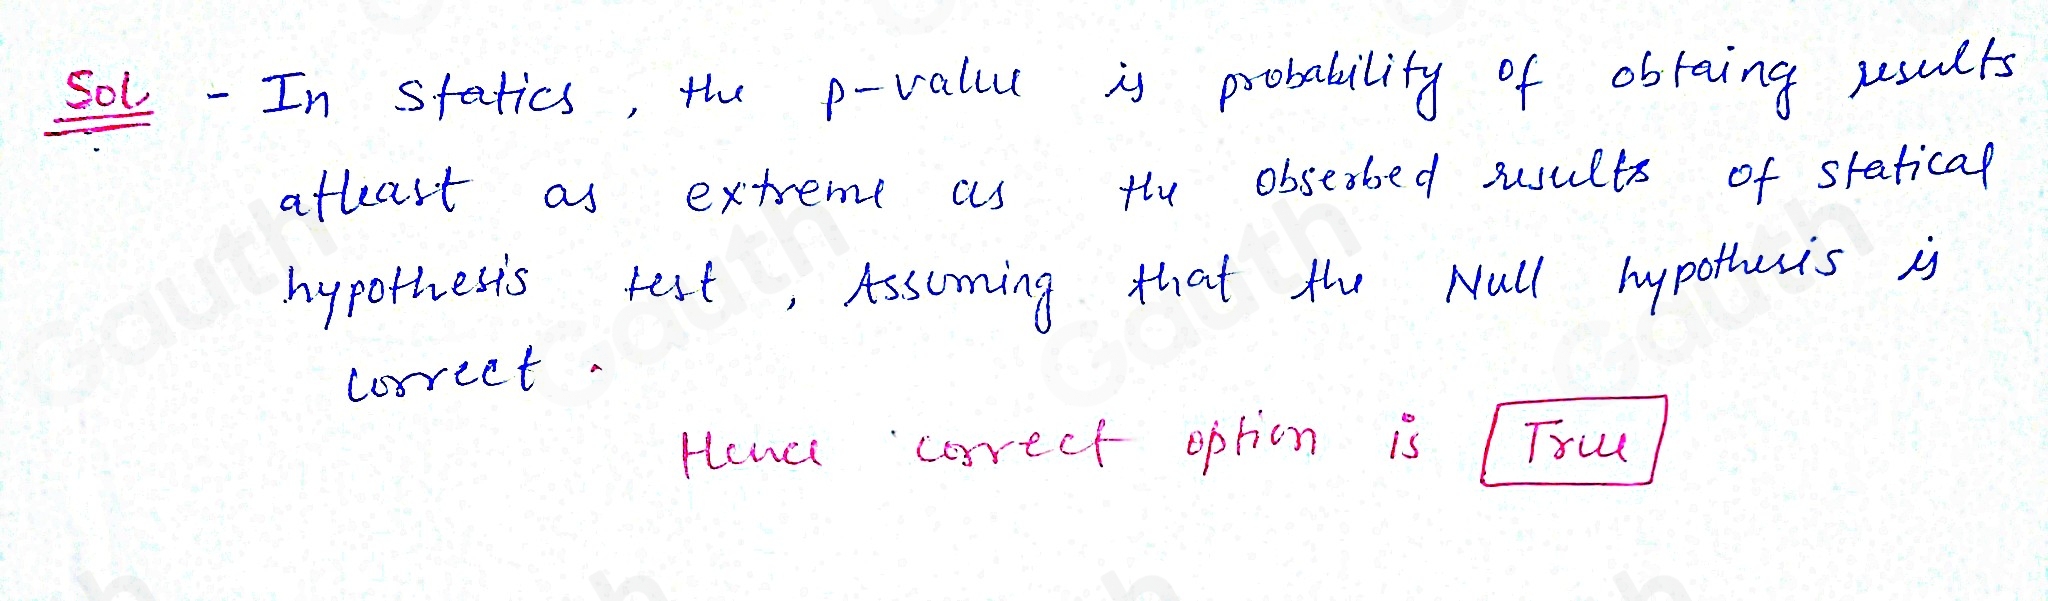 Sol - In statics, the p-value is probability of obtaing results
atleast as extreme as the obserbed results of statical
hypothesis test, Assuming that the Null hypothesis is
correct.
Hence correct option is True